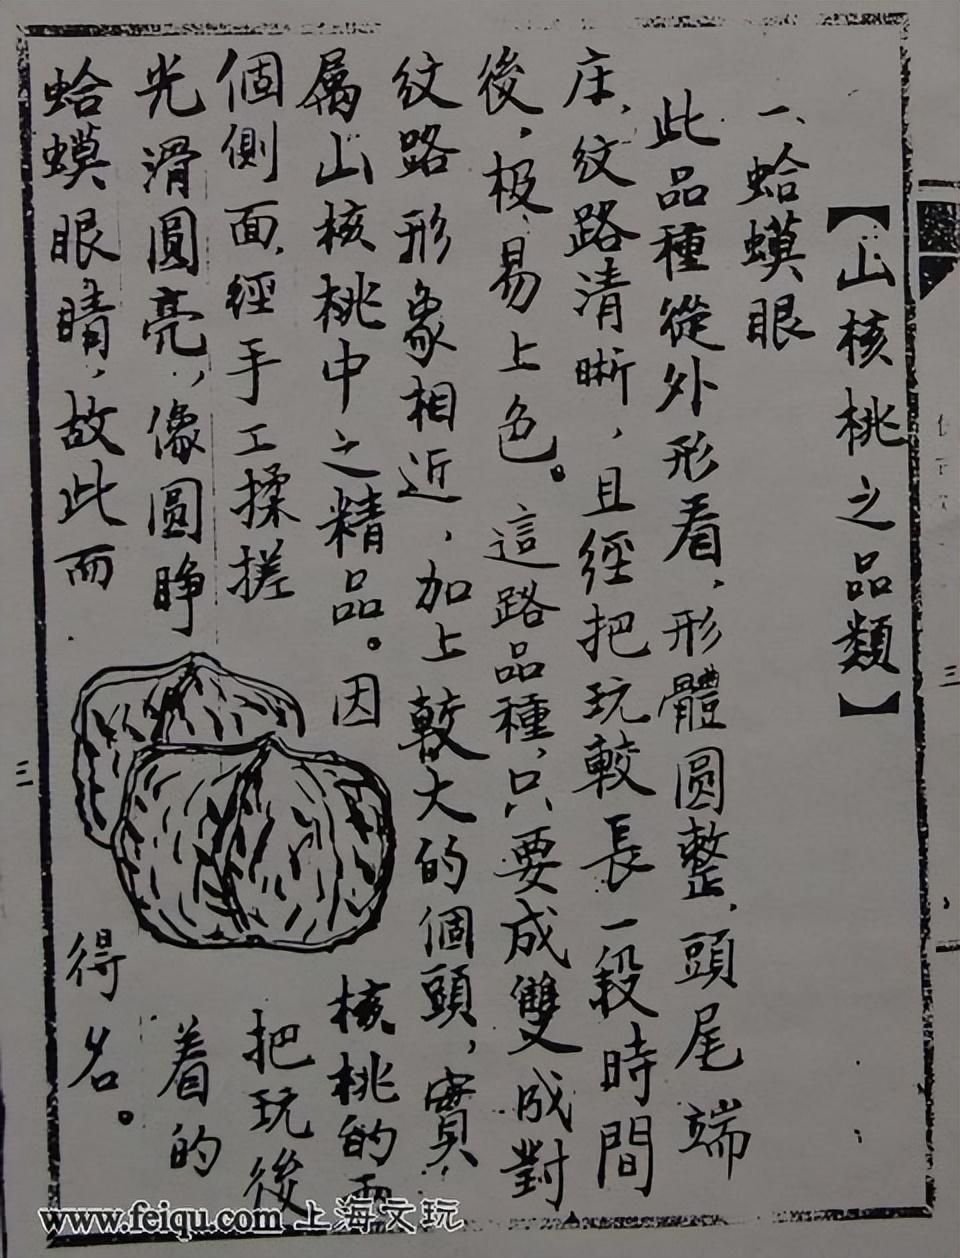 【山核桃之品類】
一、蛤蟆眼
此品種從外形看,形體圓整,頭尾端
庄,紋路清晰,且經把玩較長一段時間
後,极易上色。這路品種,只要成雙成對
紋路形象相近,加上較大的個頭,實
属山核桃中之精品。因核桃的兩
個側面,經手工揉搓把玩後
光滑圓亮,像圓睁着的
蛤蟆眼睛,故此而得名。
三
三
www.feiqu.com 上海文玩